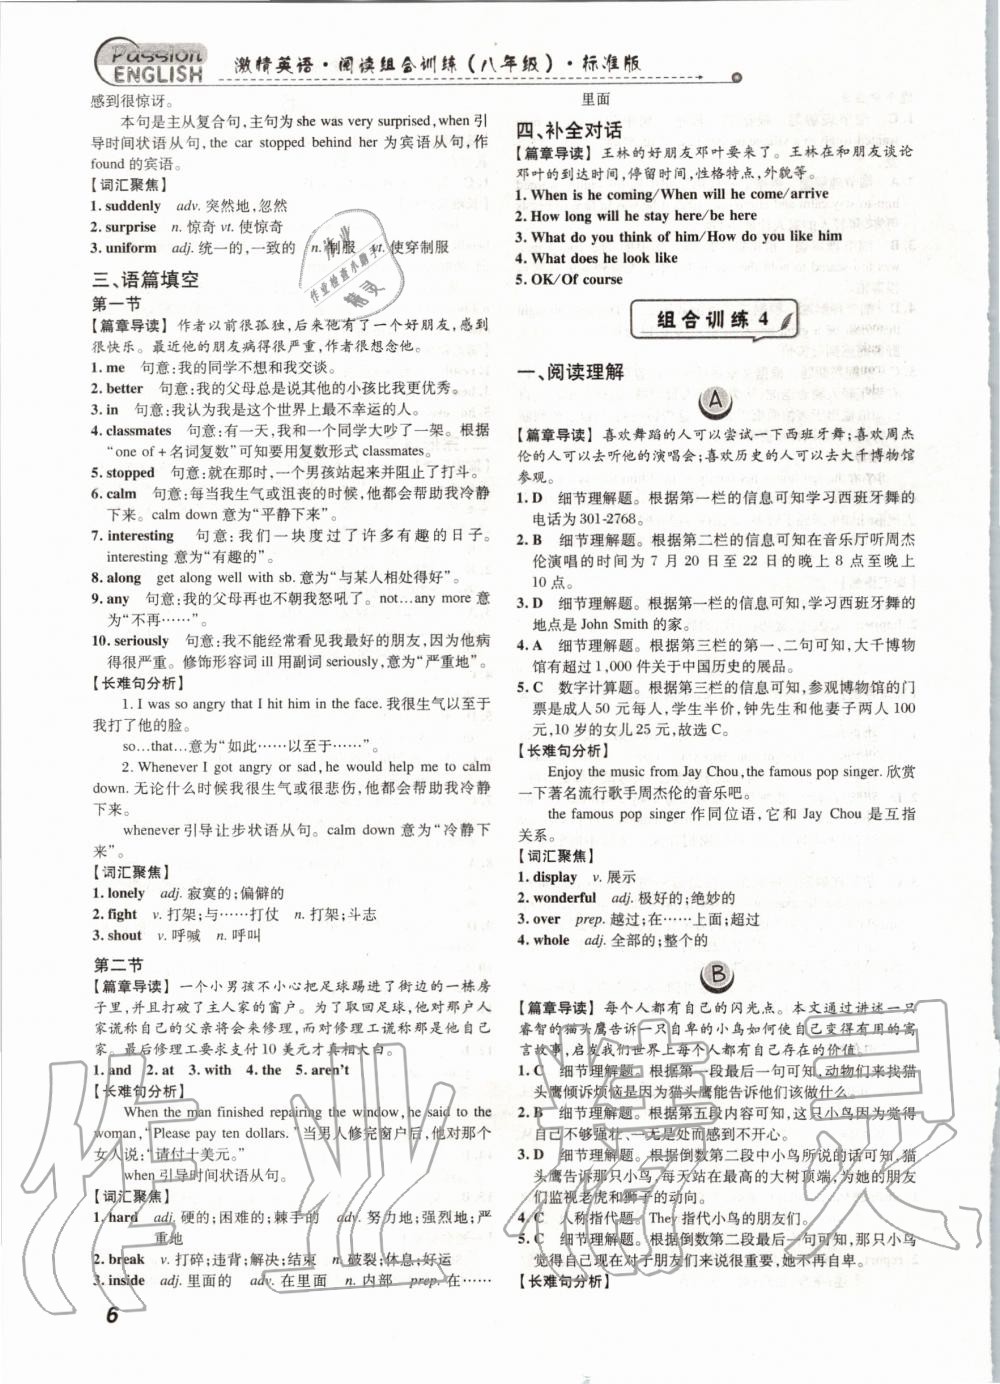 Passion ENGLISH
激情英语·阅读组合训练(八年级)·标准版
感到很惊讶。
本句是主从复合句,主句为 she was very surprised,when 引
导时间状语从句,the car stopped behind her 为宾语从句,作
found 的宾语。
【词汇聚焦】
1. suddenly adv. 突然地,忽然
2. surprise n. 惊奇 vt. 使惊奇
3. uniform adj. 统一的,一致的 n. 制服 vt. 使穿制服
三、语篇填空
第一节
【篇章导读】作者以前很孤独,后来他有了一个好朋友,感到
很快乐。最近他的朋友病得很严重,作者很想念他。
1. me 句意:我的同学不想和我交谈。
2. better 句意:我的父母总是说其他的小孩比我更优秀。
3. in 句意:我认为我是这个世界上最不幸运的人。
4. classmates 句意:有一天,我和一个同学大吵了一架。根据
“one of+名词复数”可知要用复数形式 classmates。
5. stopped 句意:就在那时,一个男孩站起来并阻止了打斗。
6. calm 句意:每当我生气或沮丧的时候,他都会帮助我冷静
下来。calm down 意为“平静下来”。
7. interesting 句意:我们一块度过了许多有趣的日子。
interesting 意为“有趣的”。
8. along get along well with sb. 意为“与某人相处得好”。
9. any 句意:我的父母再也不朝我怒吼了。not…any more 意
为“不再……”。
10. seriously 句意:我不能经常看见我最好的朋友,因为他病
得很严重。修饰形容词 ill 用副词 seriously,意为“严重地”。
【长难句分析】
1. I was so angry that I hit him in the face. 我很生气以至于
我打了他的脸。
so…that…意为“如此……以至于……”。
2. Whenever I got angry or sad,he would help me to calm
down. 无论什么时候我很生气或很悲伤,他都会帮助我冷静
下来。
whenever 引导让步状语从句。calm down 意为“冷静下
来”。
【词汇聚焦】
1. lonely adj. 寂寞的;偏僻的
2. fight v. 打架;与……打仗 n. 打架;斗志
3. shout v. 呼喊 n. 呼叫
第二节
【篇章导读】一个小男孩不小心把足球踢进了街边的一栋房
子里,并且打破了主人家的窗户。为了取回足球,他对那户人
家谎称自己的父亲将会来修理,而对修理工谎称那是他自己
家。最后修理工要求支付 10 美元才真相大白。
1. and 2. at 3. with 4. the 5. aren't
【长难句分析】
When the man finished repairing the window,he said to the
woman,“Please pay ten dollars.”当男人修完窗户后,他对那个
女人说:“请付十美元。”
when 引导时间状语从句。
【词汇聚焦】
1. hard adj. 硬的;困难的;棘手的 adv. 努力地;强烈地;严
重地
2. break v. 打碎;违背;解决;结束 n. 破裂;休息;好运
3. inside adj. 里面的 adv. 在里面 n. 内部 prep. 在……
6
里面
四、补全对话
【篇章导读】王林的好朋友邓叶要来了。王林在和朋友谈论
邓叶的到达时间,停留时间,性格特点,外貌等。
1. When is he coming/When will he come/arrive
2. How long will he stay here/be here
3. What do you think of him/How do you like him
4. What does he look like
5. OK/Of course
组合训练 4
一、阅读理解
A
【篇章导读】喜欢舞蹈的人可以尝试一下西班牙舞;喜欢周杰
伦的人可以去听他的演唱会;喜欢历史的人可以去大千博物馆
参观。
1. D 细节理解题。根据第一栏的信息可知学习西班牙舞的
电话为 301-2768。
2. B 细节理解题。根据第二栏的信息可知在音乐厅听周杰
伦演唱的时间为 7 月 20 日至 22 日的晚上 8 点至晚上
10 点。
3. D 细节理解题。根据第一栏的信息可知,学习西班牙舞的
地点是 John Smith 的家。
4. A 细节理解题。根据第三栏的第一、二句可知,大千博物
馆有超过 1,000 件关于中国历史的展品。
5. C 数字计算题。根据第三栏的信息可知,参观博物馆的门
票是成人 50 元每人,学生半价,钟先生和他妻子两人 100
元,10 岁的女儿 25 元,故选 C。
【长难句分析】
Enjoy the music from Jay Chou,the famous pop singer. 欣赏
一下著名流行歌手周杰伦的音乐吧。
the famous pop singer 作同位语,它和 Jay Chou 是互指
关系。
【词汇聚焦】
1. display v. 展示
2. wonderful adj. 极好的;绝妙的
3. over prep. 越过;在……上面;超过
4. whole adj. 全部的;整个的
B
【篇章导读】每个人都有自己的闪光点。本文通过讲述一只
睿智的猫头鹰告诉一只自卑的小鸟如何使自己变得有用的寓
言故事,启发我们世界上每个人都有自己存在的价值。
1. C 细节理解题。根据第一段最后一句可知,动物们来找猫
头鹰倾诉烦恼是因为猫头鹰能告诉他们该做什么。
2. B 细节理解题。根据第五段内容可知,这只小鸟因为觉得
自己不够强壮、一无是处而感到不开心。
3. D 细节理解题。根据倒数第二段中小鸟所说的话可知,猫
头鹰告诉那只小鸟,每天站在最高的大树顶端,为她的朋友
们监视老虎和狮子的动向。
4. C 人称指代题。They 指代小鸟的朋友们。
5. C 细节理解题。根据倒数第二段最后一句可知,那只小鸟
觉得现在对于朋友们来说,她不再自卑。
【长难句分析】
作业
作业检查小助手
精灵
作业精灵